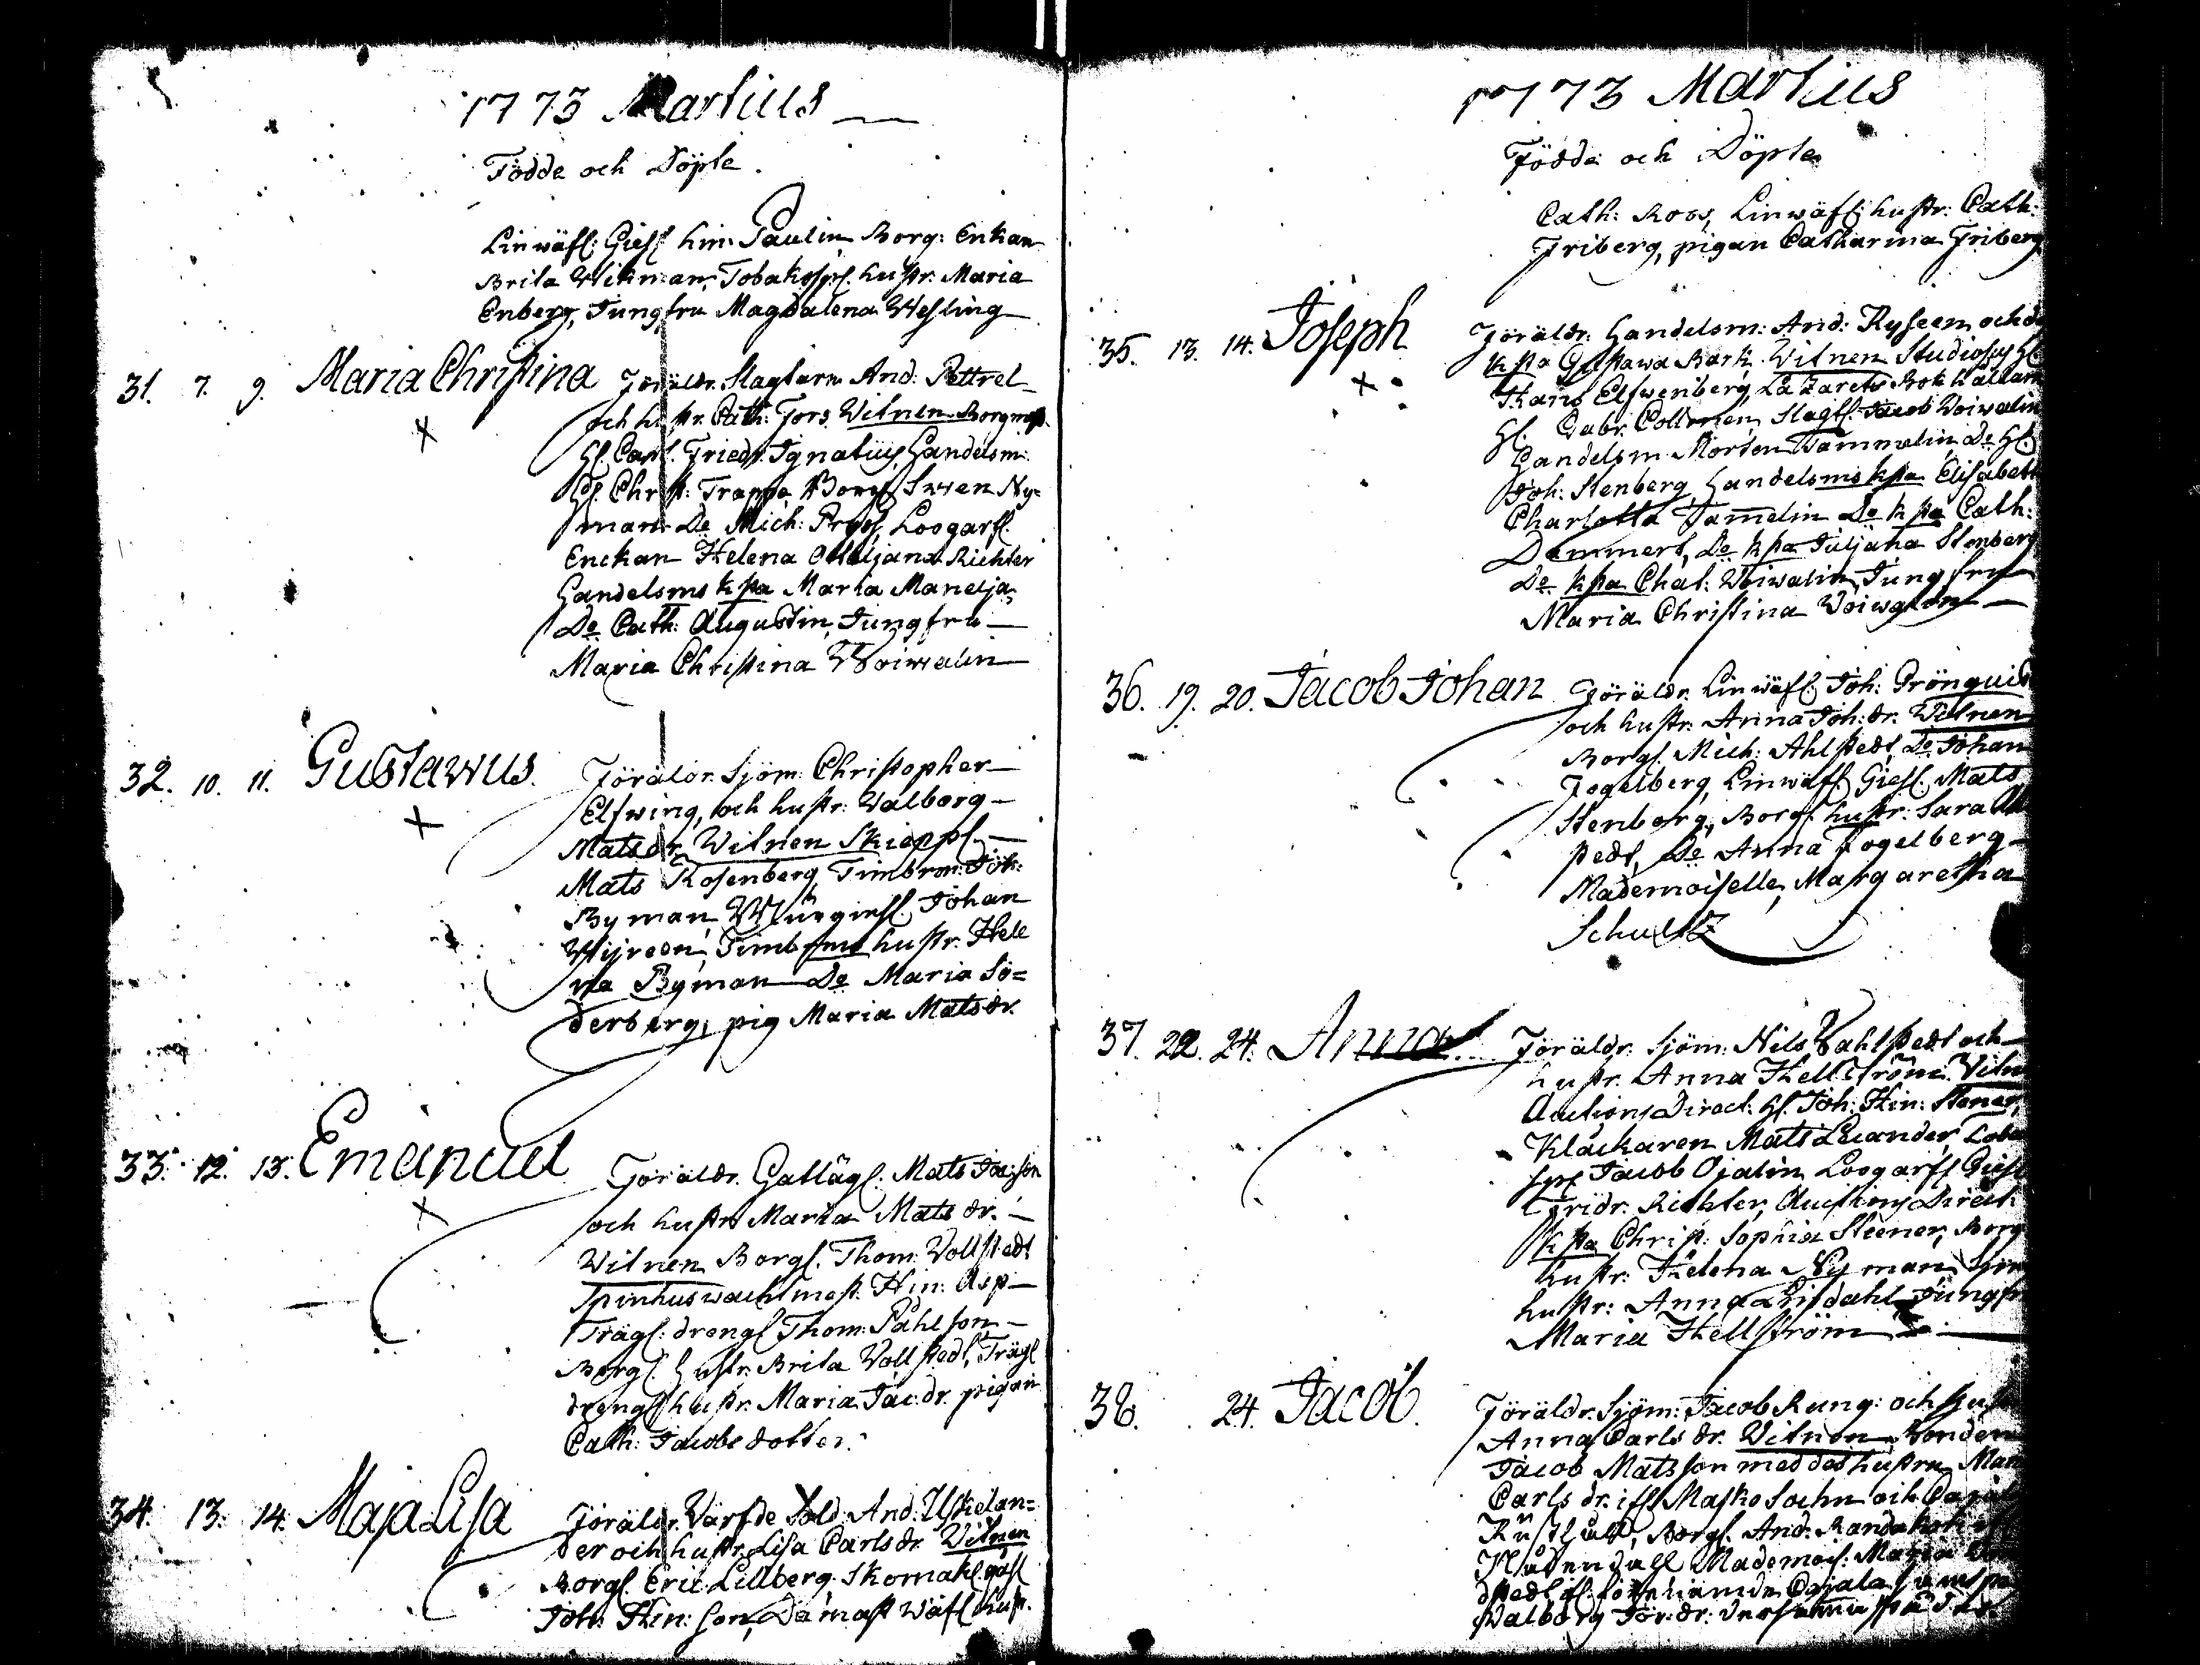 1773 Martius
Födde och Döpte.
Linwäfl: Giesl Hin: Paulin Borg: Enkan
Brita Witman, Tobakssp. hustr. Maria
Enberg, Jungfru Magdalena Wesling
31. 7. 9. Maria Christina Föräldr. Slagtarn And: Pettrel
och hustr. Cath: Fors. Witnen Borgmäst.
Hl. Carl. Friedr. Ignatius, Handelsm:
Hl. Christ: Trappa, Borgl Swen Ny=
man Do Mich: Prysl, Loogarfl.
Enckan Helena Otteljana Richter
Handelsms kpa Marta Manelja,
Do Cath: Augustin, Jungfru
Maria Christina Woiwalin
32. 10. 11. Gustawus. Föräldr. Sjöm: Christopher
Elfwing, och hustr: Walborg
Matsdr, Witnen Skieppl.
Mats Rosenberg, Timbrm: Joh:
Byman, Johan
Timbrms hustr. Hele
na Byman Do Maria Sö=
derberg, pig Maria Matsdr.
33. 12. 13. Emanuel Föräldr. Mats Jacson
och hustr Marta Matsdr.
Witnen Borgl. Thom: Vollstedt
Spinhuswachtmest. Hin: Asp
Trägl: drengl Thom: Påhlson
Borgl. Hustr. Brita Vollstedt, Trägl
drengl hustr. Maria Jac:dr. pigan
Cath: Jacobs dotter.
34. 13. 14. Maja Lisa Föräldr. Värfde Sold: And: Uskelan=
der och hustr. Lisa Carlsdr. Witnen
Borgl. Eric Lillberg, Skomakl gäsl
Joh: Hin: son, Damast Wäfl hust.
1773 Martius
Födde och Döpte
Cath: Roos, Linwäfl: hustr: Cath:
Friberg, pigan Catharina Friberg
35. 13. 14. Joseph Föräldr. Handelsm: And: Ryseen och
kpa Gustawa Bark. Witnen Studiosus Hl.
Elfwenberg, Lazarets Bokhållarn
Hl. Gabr. Collonen, Slagtl. Jacob Woiwalin
Handelsm Morten Tammelin, Do Hl.
Joh: Stenberg, Handelsms kpa Elisabeth
Charlotta Tamelin Do kpa Cath:
Dammert, Do kpa Juljana Stenberg
Do kpa Chat: Woiwalin, Jungfru
Maria Christina Woiwalin
36. 19. 20. Jacob Johan Föräldr. Linwäfl: Joh: Grönquist
och hustr. Anna Joh:dr. Witnen
Borgl. Mich: Ahlstedt, Do Johan
Fogelberg, Linwäfl. Giesl. Mats
Stenberg, Borgl. hustr. Sara Ahl
stedt, Do Anna Fogelberg
Mademoiselle, Margaretha
Schultz
37. 22. 24. Anna Föräldr. Sjöm: Nils Wahlstedt och
hustr. Anna Hellström. Witn
Auctions Direct: Hl. Joh: Hin: Stener,
Klåckaren Mats Leander, Toba
sps Jacob Ojalin, Loogarfl Giesl
Fridr. Richter, Auctions Direct:
kpa Christ: Sophia Steener, Borg
hustr: Helena Nyman, Sjöm
hustr: Anna Lisdahl, Jungfr
Maria Hellström
38. 24. Jacob. Föräldr. Sjöm: Jacob Kung: och Hust
Anna Carlsdr. Witnen Bonden
Jacob Matsson med dess hustru Mar
Carlsdr. ifl Masko Sochn och
Borgl. And: Randakoski
Mademois: Maria
Walborg